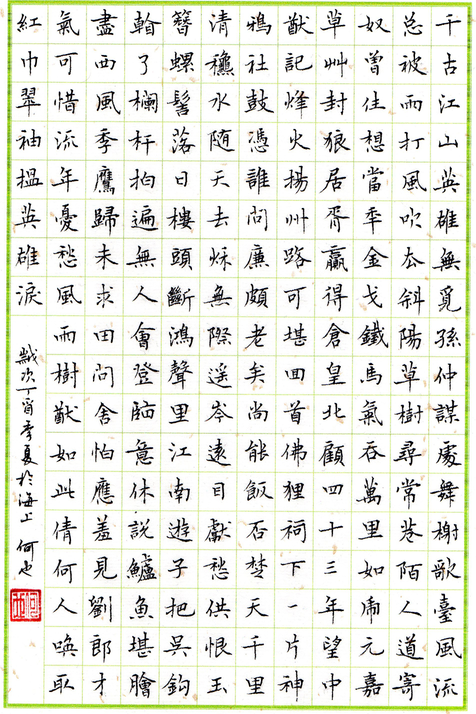 千古江山英雄無覓孫仲謀處舞榭歌臺風流
总被雨打風吹厺斜陽草樹尋常巷陌人道寄
奴曾住想當年金戈鐵馬氣吞萬里如虎元嘉
草艸封狼居胥贏得倉皇北顧四十三年望中
猶記烽火揚州路可堪回首佛狸祠下一片神
鴉社鼓憑誰問廉頗老矣尚能飯否楚天千里
清穐水随天去秋無際遥岑遠目獻愁供恨玉
簪螺髻落日樓頭斷鴻聲里江南遊子把吳鈎
看了欄杆拍遍無人會登臨意休說鱸魚堪膾
盡西風季鷹歸未求田問舍怕應羞見劉郎才
氣可惜流年憂愁風雨樹猷如此倩何人喚取
紅巾翠袖揾英雄淚
歲次丁酉季夏於海上 何也